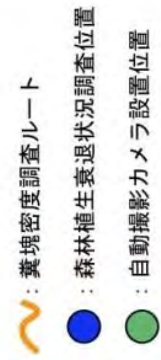 ：糞塊密度調査ルート
：森林植生衰退状況調査位置
：自動撮影カメラ設置位置